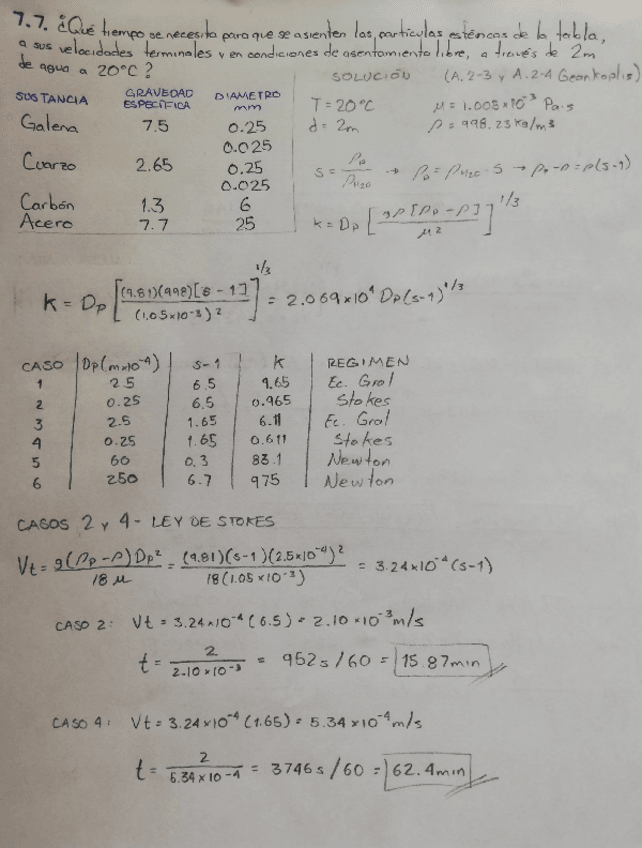 7.7. ¿Qué tiempo se necesita para que se asienten las partículas esféricas de la tabla,
a sus velocidades terminales y en condiciones de asentamiento libre, a través de 2m
de agua a 20°C?
SOLUCIÓN (A.2-3 y A.2-4 Geankoplis)
SUSTANCIA GRAVEDAD ESPECÍFICA DIAMETRO mm
Galena 7.5 0.25
0.025
Cuarzo 2.65 0.25
0.025
Carbón 1.3 6
Acero 7.7 25
T = 20°C μ = 1.005×10⁻³ Pa·s
d = 2m ρ = 998.23 kg/m³
S = ρp/ρH₂O → ρp = ρH₂O · S → ρp - ρ = ρ(s-1)
k = Dp [gρ[ρp - ρ]/μ²]^1/3
k = Dp [(9.81)(998)[s - 1]/(1.05×10⁻³)²]^1/3 = 2.069×10⁴ Dp(s-1)^1/3
CASO Dp(m×10⁻⁴) s-1 k REGIMEN
1 2.5 6.5 9.65 Ec. Gral
2 0.25 6.5 0.965 Stokes
3 2.5 1.65 6.11 Ec. Gral
4 0.25 1.65 0.611 Stokes
5 60 0.3 83.1 Newton
6 250 6.7 975 Newton
CASOS 2 y 4 - LEY DE STOKES
Vt = g(ρp-ρ)Dp²/18μ = (9.81)(s-1)(2.5×10⁻⁴)²/18(1.05×10⁻³) = 3.24×10⁻⁴(s-1)
CASO 2: Vt = 3.24×10⁻⁴(6.5) = 2.10×10⁻³m/s
t = 2/2.10×10⁻³ = 952s/60 = 15.87min
CASO 4: Vt = 3.24×10⁻⁴(1.65) = 5.34×10⁻⁴m/s
t = 2/5.34×10⁻⁴ = 3746s/60 = 62.4min